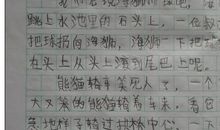 跳上水池里的石头上，一位叔
把球扔向海狮，海狮一下把球
在头上从头上滚到尾巴上呢。
熊猫骑车笑死人了，一个
大又笨的熊猫骑着车来，看它
急地样子转过